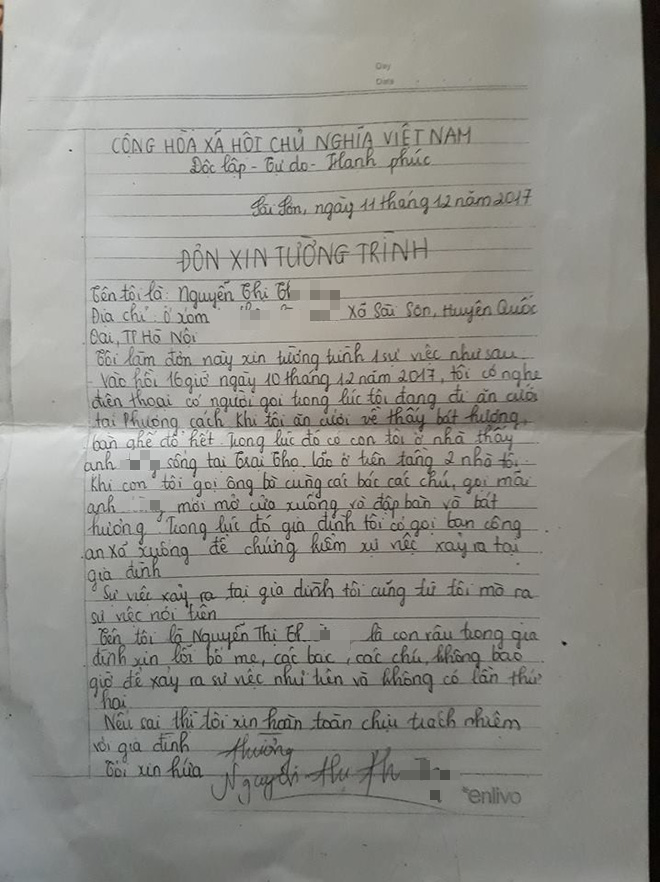 Day
Date
CỘNG HÒA XÃ HÔI CHỦ NGHĨA VIỆT NAM
Dôc lâp - Tự do - Hanh phúc
Sài Sơn, ngày 11 tháng 12 năm 2017
ĐƠN XIN TƯỜNG TRÌNH
Tên tôi là: Nguyễn Thi Th
Địa chỉ: ở xóm Xã Sài Sơn, Huyện Quốc
Oai, TP Hà Nội
Tôi làm đơn này xin tường trình 1 sự việc như sau
- Vào hồi 16 giờ ngày 10 tháng 12 năm 2017, tôi có nghe
điên thoại có người gọi trong lúc tôi đang đi ăn cưới
tại Phượng cách khi tôi ăn cưới về thấy bát hương,
bàn ghế đổ hết. Trong lúc đó có con tôi ở nhà thấy
anh , sống tại Trai Tho lão ở trên tầng 2 nhà tôi.
Khi con tôi gọi ông bà cùng các bác các chú, gọi mãi
anh , mới mở cửa xuống và đập bàn và bát
hương. Trong lúc đó gia đình tôi có gọi ban công
an xã xuống để chứng kiếm sự việc xảy ra tại
gia đình
Sự việc xảy ra tại gia đình tôi cũng từ tôi mà ra
sự việc nói trên
Tên tôi là Nguyễn Thị Th , là con râu trong gia
đình xin lỗi bố mẹ, các bác, các chú, không bao
giờ để xảy ra sư việc như trên và không có lần thứ
hai
Nếu sai thì tôi xin hoàn toàn chịu trách nhiêm
với gia đình thường
Tôi xin hứa Nguyễn thị Th
enlivo